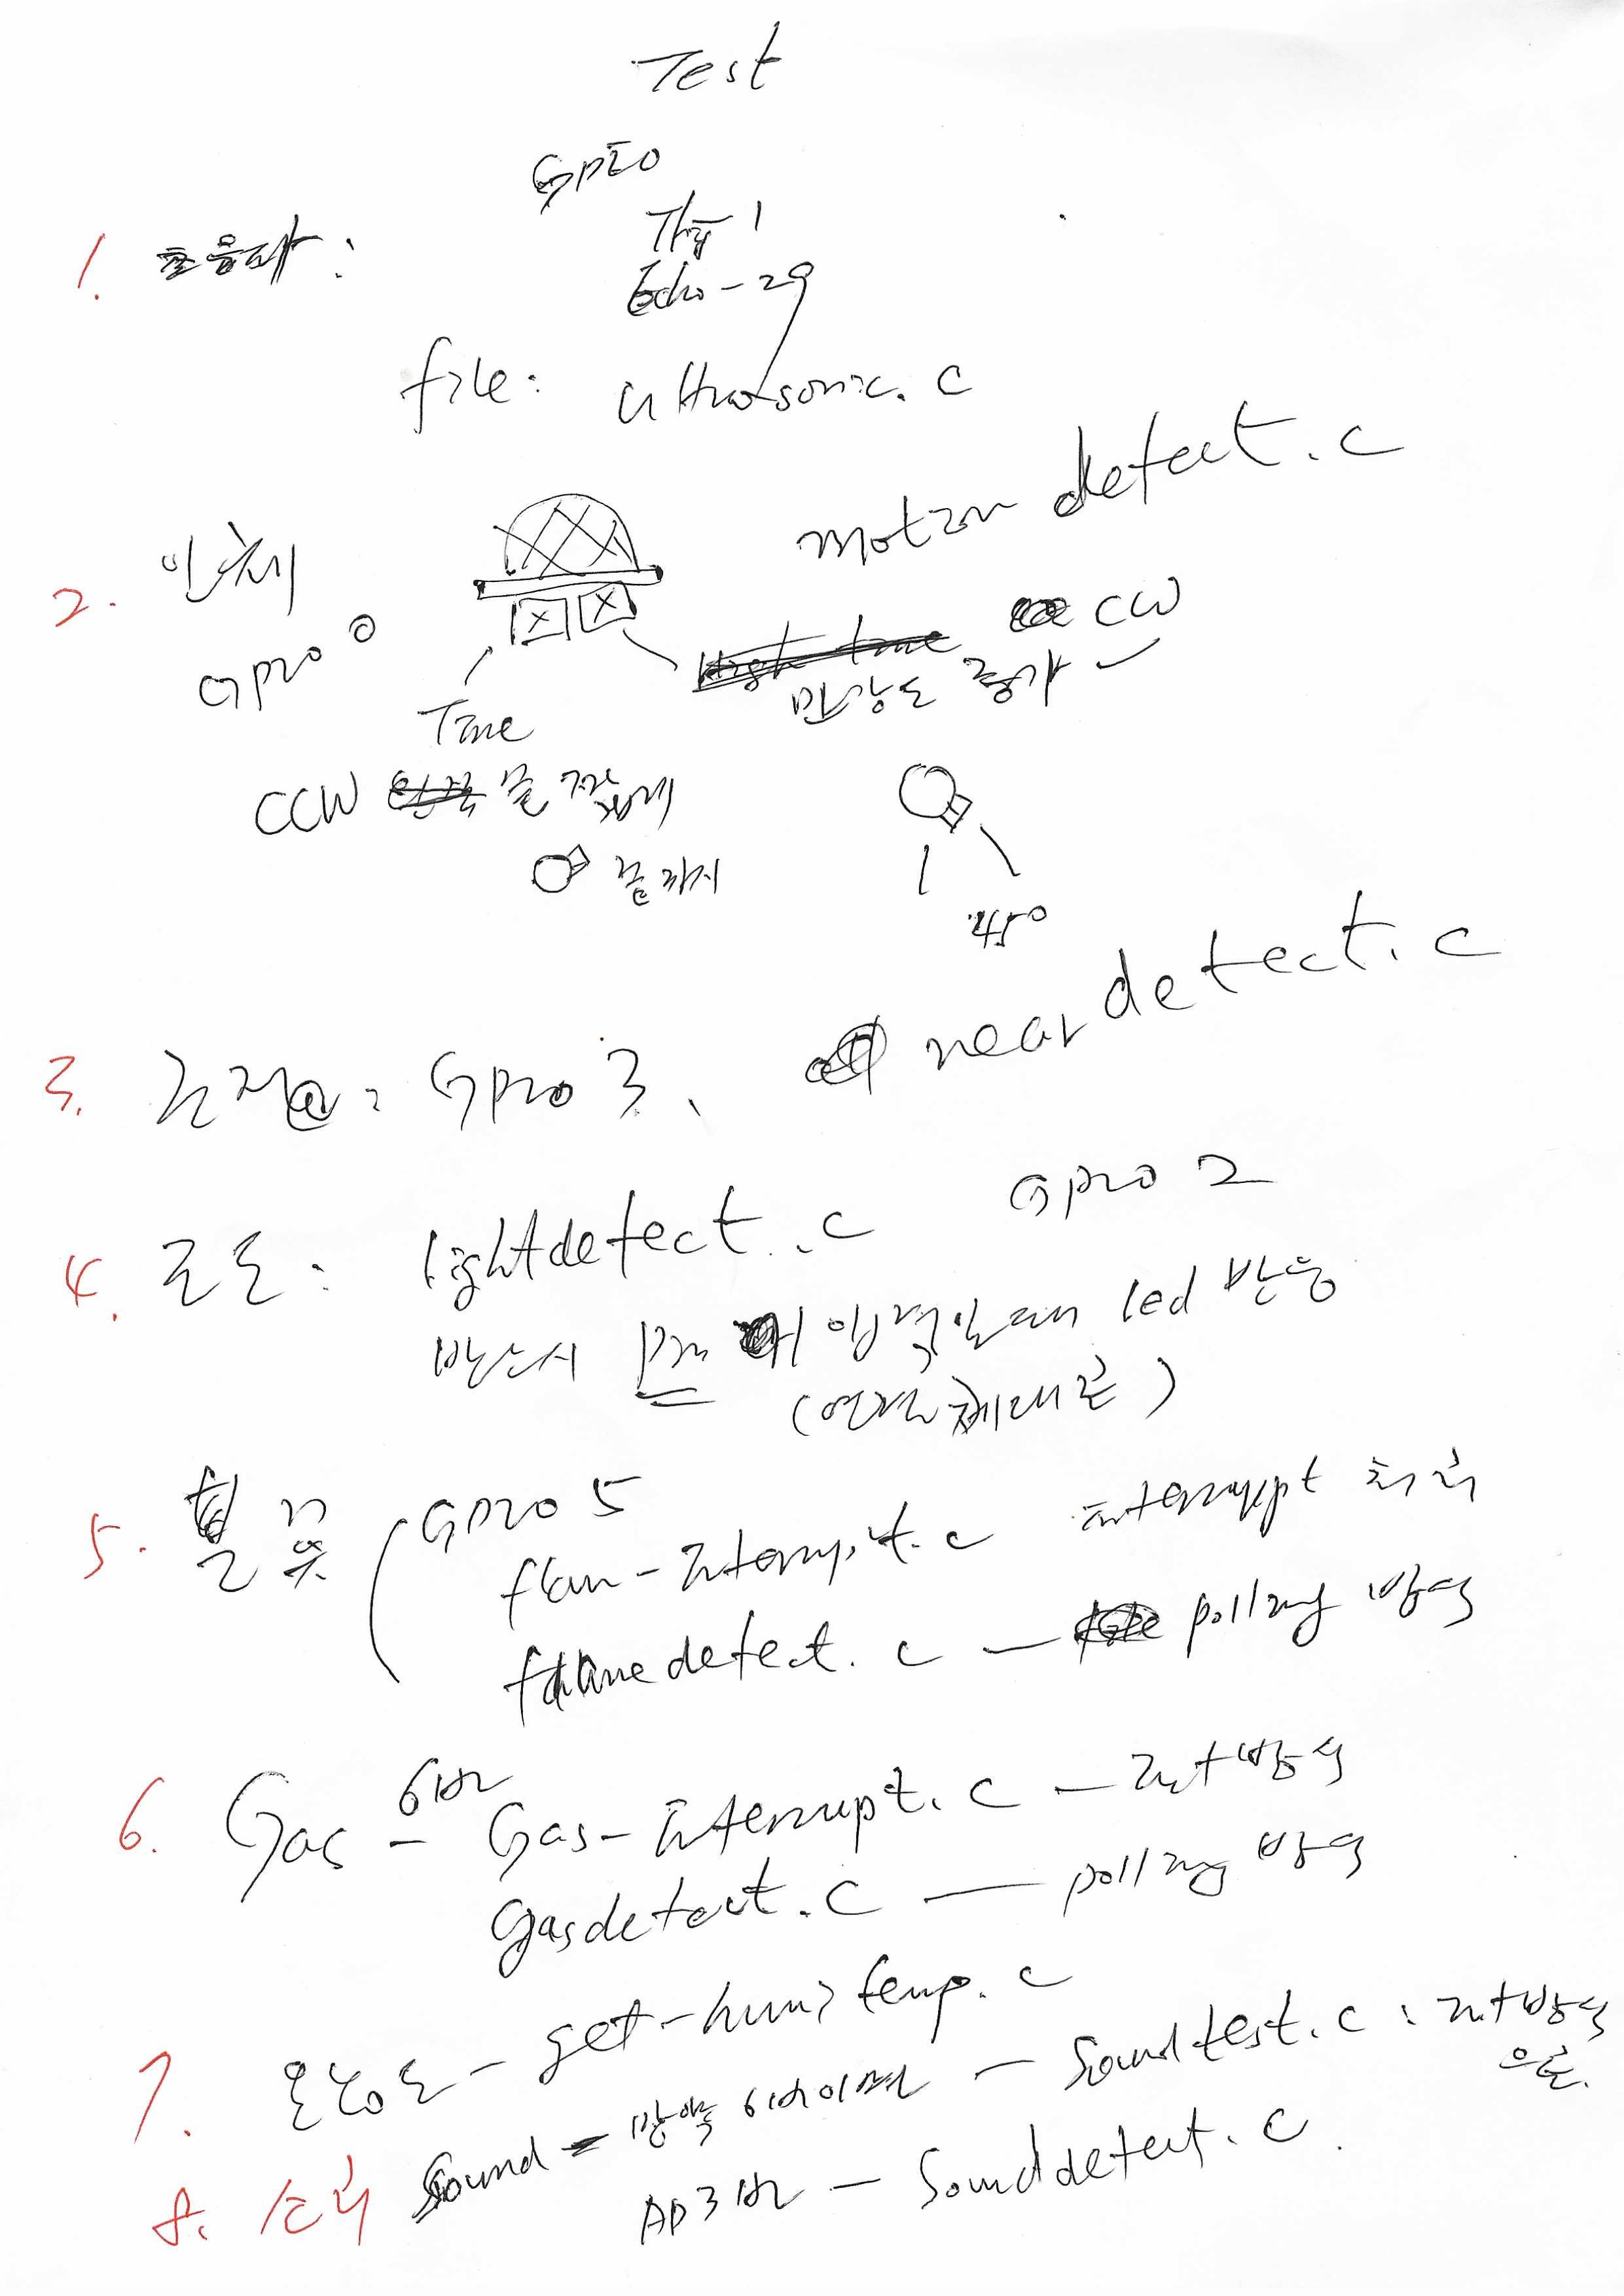 Test
GPIO
1. 초음파 :
Echo - 29
file : ultrasonic.c
motion detect.c
2. 인체
GPIO 0
CW
민감도 증가
Time
CCW 끝까지
45°
3. 근접 : GPIO 3, near detect.c
4. 조도 : lightdetect.c GPIO 2
반드시 입력일때 led 반응
5. 불꽃 GPIO 5
flam-Interrupt.c interrupt 처리
flamedetect.c — polling 방식
6. Gas - 6번 Gas-Interrupt.c - Int 방식
gasdetect.c — polling 방식
7. 온습도 - get-humi temp.c
8. 소리 Sound - 만약 6번이면 - Soundtest.c : Int방식
으로.
AD 3번 - Sounddetect.c